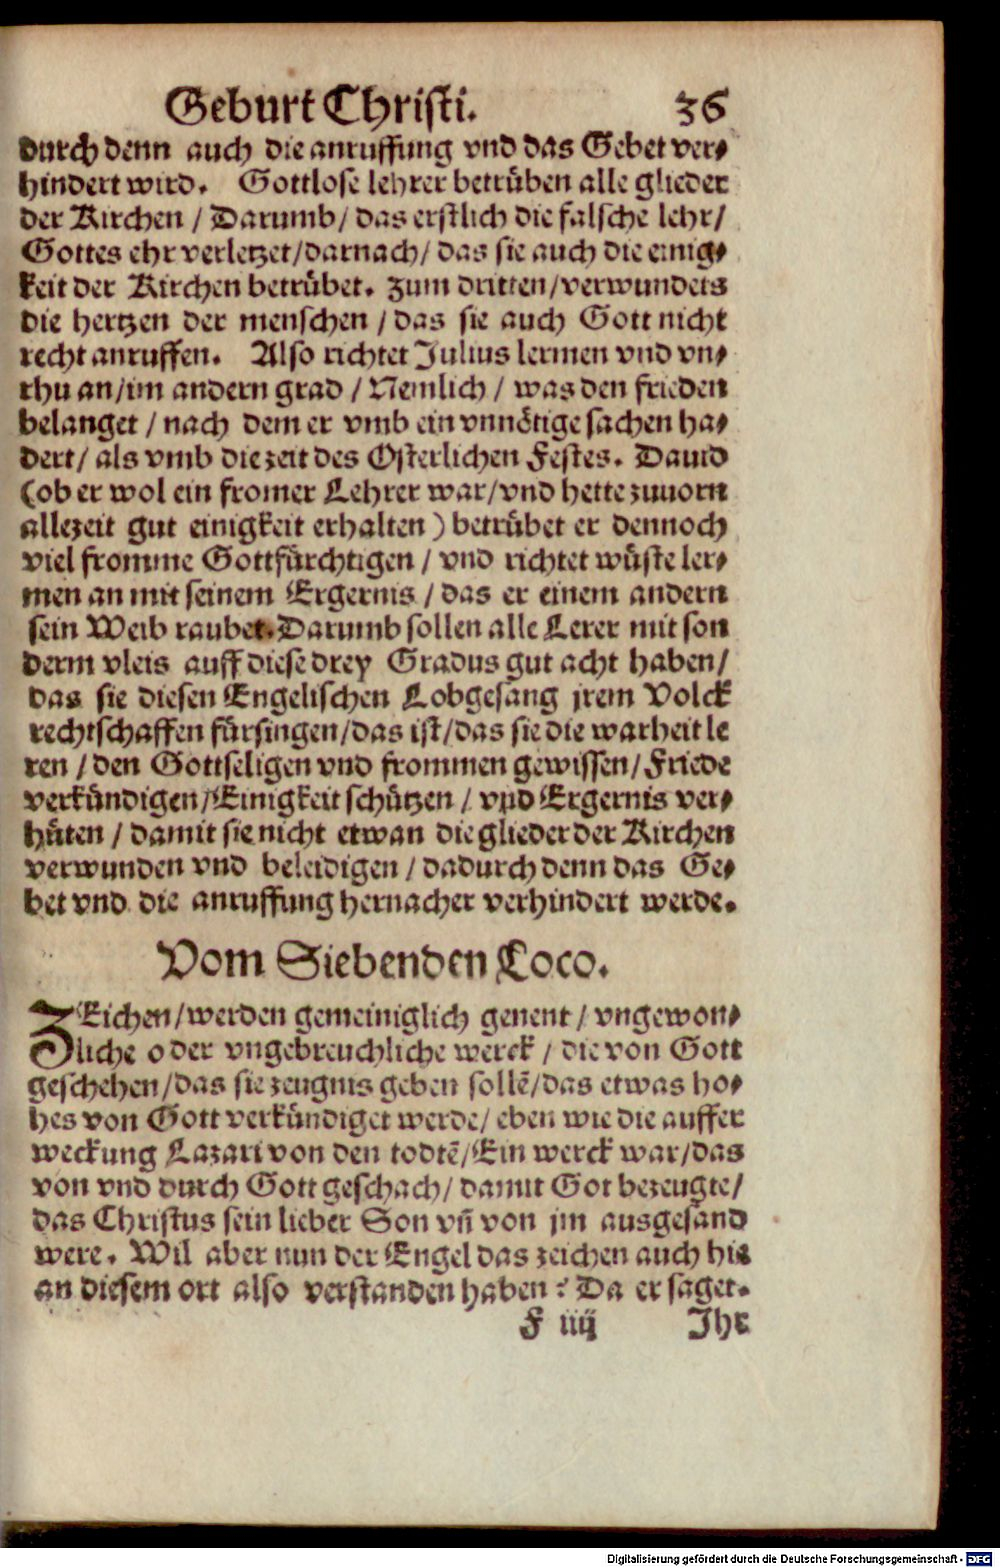 Geburt Christi. 36
durch denn auch die anruffung vnd das Gebet ver⸗
hindert wird. Gottlose lehrer betrüben alle glieder
der Kirchen / Darumb / das erstlich die falsche lehr /
Gottes ehr verletzet / darnach / das sie auch die einig⸗
keit der Kirchen betrübet. zum dritten / verwundets
die hertzen der menschen / das sie auch Gott nicht
recht anruffen. Also richtet Julius lermen vnd vn⸗
rhu an / im andern grad / Nemlich / was den frieden
belanget / nach dem er vmb ein vnnötige sachen ha⸗
dert / als vmb die zeit des Osterlichen Festes. Dauid
(ob er wol ein fromer Lehrer war / vnd hette zuuorn
allezeit gut einigkeit erhalten) betrübet er dennoch
viel fromme Gottfürchtigen / vnd richtet wüste ler⸗
men an mit seinem Ergernis / das er einem andern
sein Weib raubet. Darumb sollen alle Lerer mit son
derm vleis auff diese drey Gradus gut acht haben /
das sie diesen Engelischen Lobgesang jrem Volck
rechtschaffen fürsingen / das ist / das sie die warheit le
ren / den Gottseligen vnd frommen gewissen / Friede
verkündigen / Einigkeit schützen / vnd Ergernis ver⸗
hüten / damit sie nicht etwan die glieder der Kirchen
verwunden vnd beleidigen / dadurch denn das Ge⸗
bet vnd die anruffung hernacher verhindert werde.
Vom Siebenden Loco.
ZEichen / werden gemeiniglich genent / vngewon⸗
liche oder vngebreuchliche werck / die von Gott
geschehen / das sie zeugnis geben sollē / das etwas ho⸗
hes von Gott verkündiget werde / eben wie die auffer
weckung Lazari von den todtē / Ein werck war / das
von vnd durch Gott geschach / damit Got bezeugte /
das Christus sein lieber Son vñ von jm ausgesand
were. Wil aber nun der Engel das zeichen auch hie
an diesem ort also verstanden haben? Da er saget.
F iiij Ihr
Digitalisierung gefördert durch die Deutsche Forschungsgemeinschaft - DFG